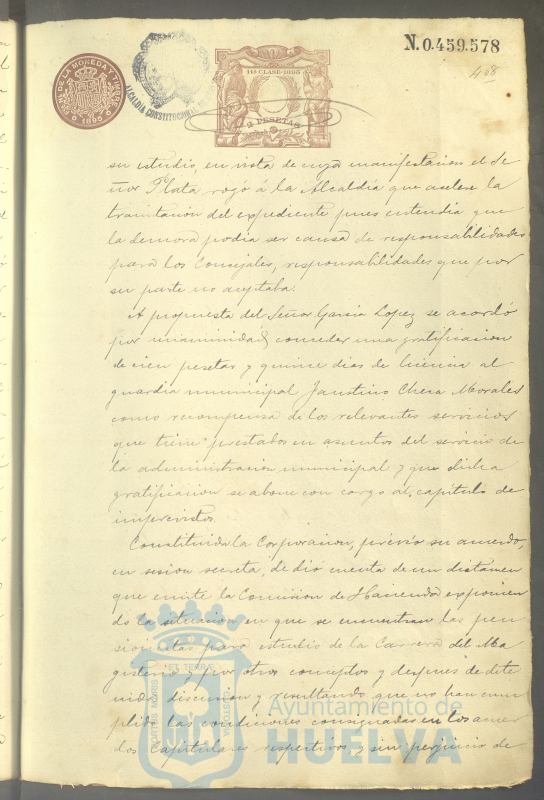 N.0.459.578
458
FAB. NAL. DE LA MONEDA Y TIMBRE
1895
ALCALDIA CONSTITUCIONAL
11ª CLASE-1895
2 PESETAS
su estudio, en vista de cuya manifestacion el Se
ñor Plata rogó á la Alcaldía que acelere la
tramitacion del expediente pues entendia que
la demora podia ser causa de responsabilidades
para los Concejales, responsabilidades que por
su parte no aceptaba.
A propuesta del Señor Garcia Lopez se acordó
por unanimidad conceder una gratificacion
de cien pesetas y quince dias de licencia al
guardia municipal Faustino Chera Morales
como recompensa de los relevantes servicios
que tiene prestados en asuntos del servicio de
la administracion municipal y que dicha
gratificacion se abone con cargo al capítulo de
imprevistos.
Constituida la Corporacion, prévio su acuerdo,
en sesion secreta, de dió cuenta de un dictamen
que emite la Comision de Hacienda exponien
do la situacion en que se encuentran las pen
sionistas para estudio de la Carrera del Ma
gisterio y por otros conceptos y despues de dete
nida discusion y resultando que no han cum
plido las condiciones consignadas en los acuer
dos capitulares respectivos y sin perjuicio de
PORTUS MARIS ET TERRE CUSTODIA
Ayuntamiento de
HUELVA